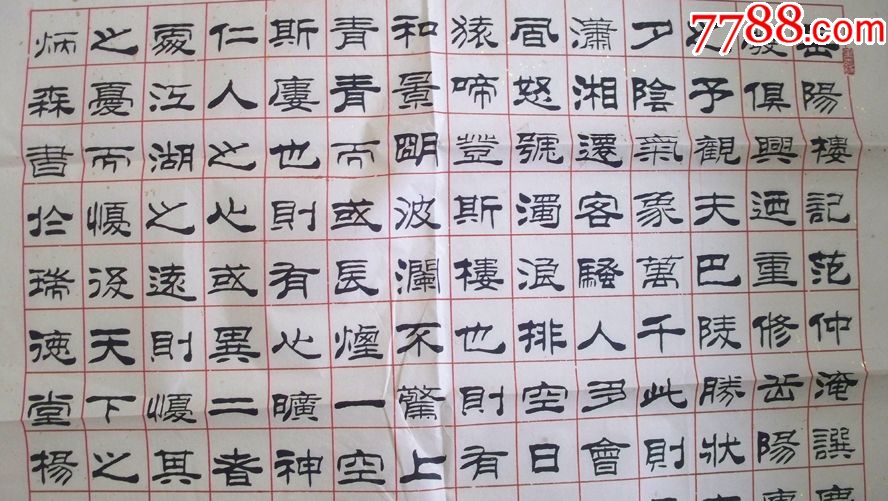 7788.com
岳陽樓記范仲淹譔
俱興迺重修岳陽
予觀夫巴陵勝狀
夕陰氣象萬千此則
瀟湘遷客騷人多會
風怒號濁浪排空日
猿啼登斯樓也則有
和景朙波瀾不驚上
青青而或長煙一空
斯廔也則有心曠神
仁人之心或異二者
處江湖之遠則憂其
之憂而憂後天下之
炳森書於瑞德堂楊